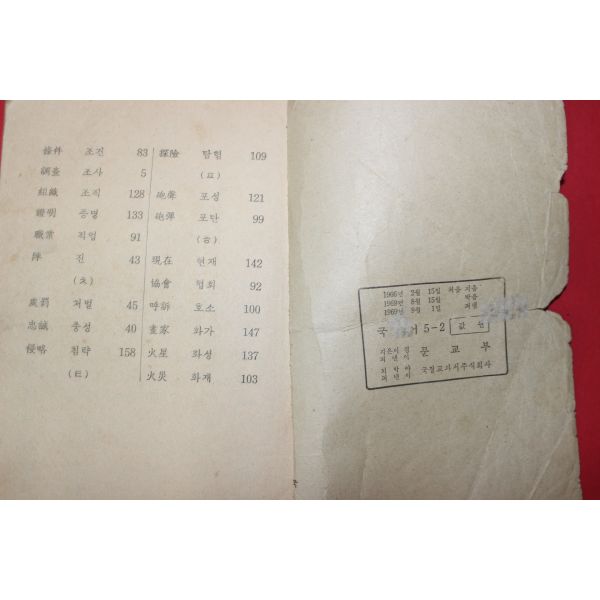 條件 조건 83
調査 조사 5
組織 조직 128
證明 증명 133
職業 직업 91
陣 진 43
(ㅊ)
處罰 처벌 45
忠誠 충성 40
侵略 침략 158
(ㅌ)
探險 탐험 109
(ㅍ)
砲聲 포성 121
砲彈 포탄 99
(ㅎ)
現在 현재 142
協會 협회 92
呼訴 호소 100
畫家 화가 147
火星 화성 137
火災 화재 103
1966년 2월 15일 처음 지음
1969년 8월 15일 박음
1969년 9월 1일 펴냄
국 어 5-2 값 원
지은이 겸 펴낸이 문 교 부
국정교과서주식회사
국